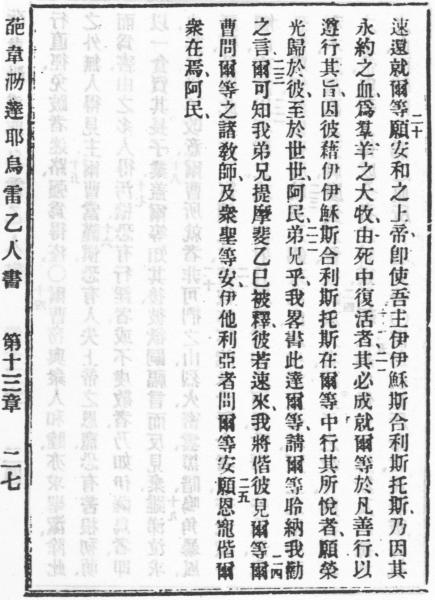 速還就爾等願安和之上帝卽使吾主伊伊穌斯合利斯托斯乃因其
永約之血爲羣羊之大牧由死中復活者其必成就爾等於凡善行以
遵行其旨因彼藉伊伊穌斯合利斯托斯在爾等中行其所悅者願榮
光歸於彼至於世世阿民弟兄乎我畧書此達爾等請爾等聆納我勸
之言爾可知我弟兄提摩斐乙已被釋彼若速來我將偕彼見爾等爾
曹問爾等之諸教師及衆聖等安伊他利亞者問爾等安願恩寵偕爾
衆在焉阿民
二十
二一
二二
二三
二四
二五
耶烏雷乙人書
第十三章
二七